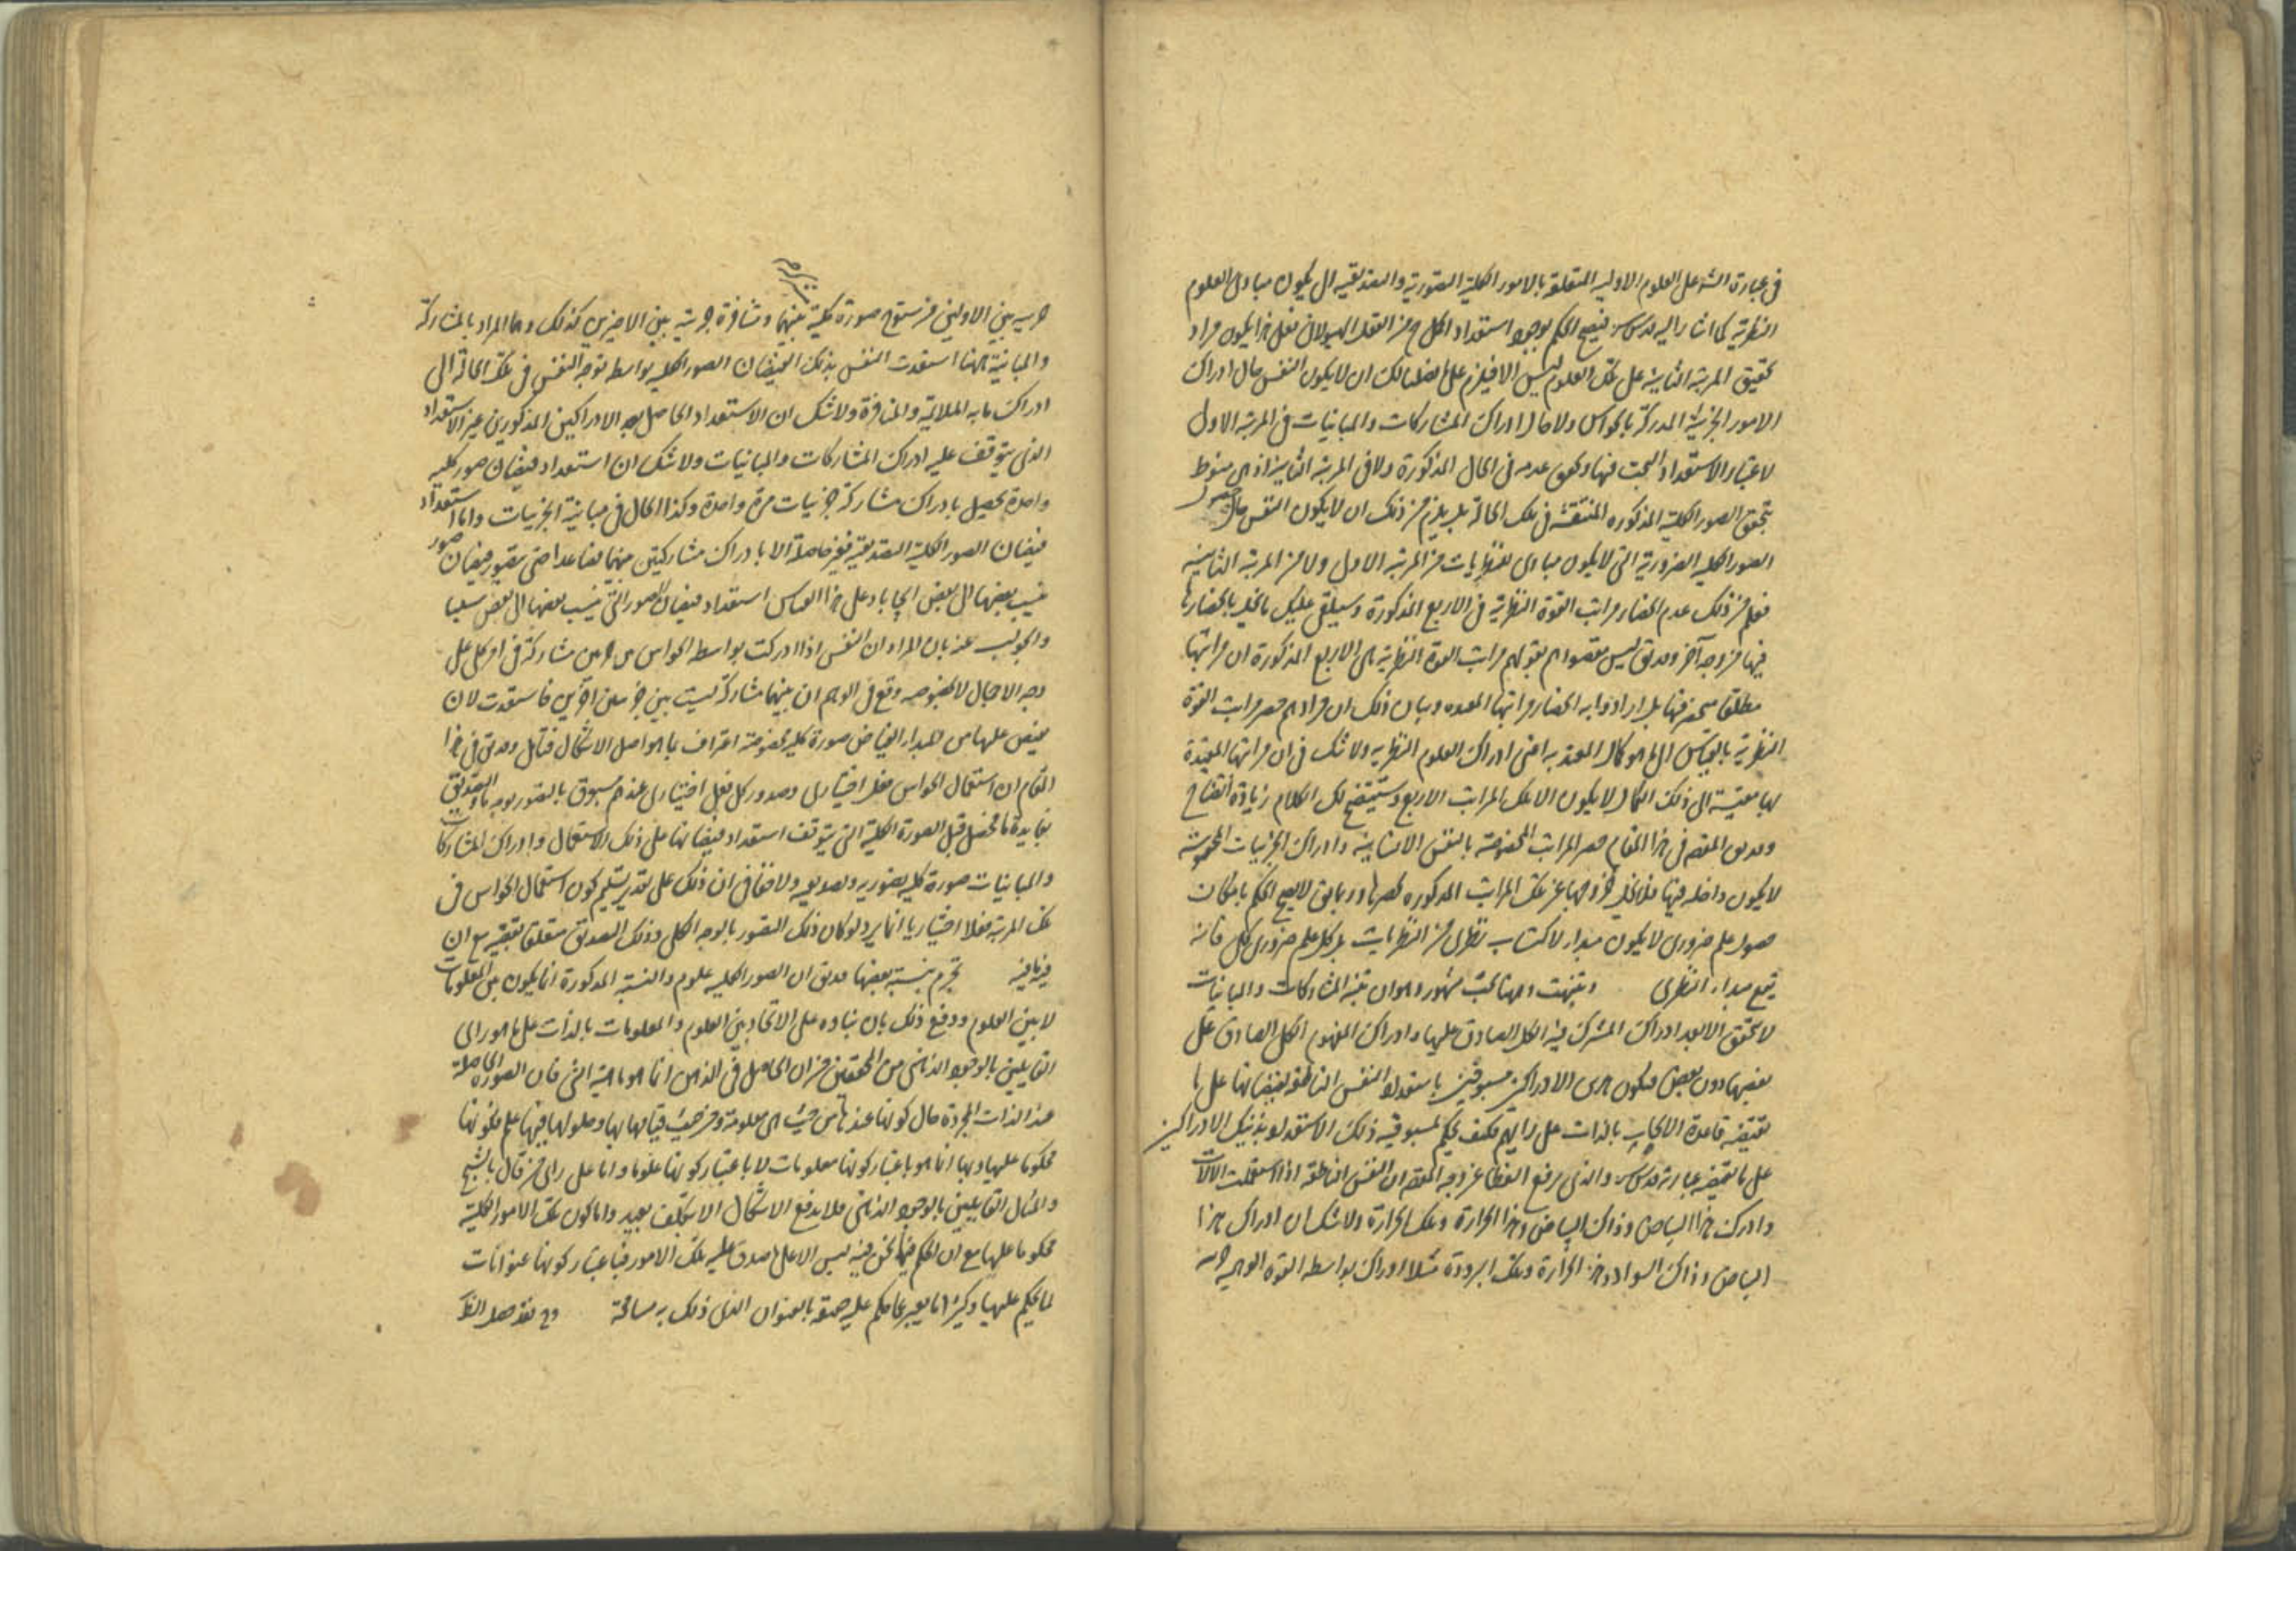 في عبارة الش على العلوم الاولية المتعلقة بالامور الكلية التصورية والتصديقية ال يكون مبادى العلوم
النظرية كما اشار اليه قدس سره فيصح الحكم بوجود استعداد الكل من العقل الهيولانى فعلى هذا يكون مراد
تحقيق المرتبة الثانية على تلك العلوم ليس الا فيلزم على ما فصلنا لك ان لا يكون النفس حال ادراك
الامور الجزئية المدركة بالحواس ولا حال ادراك المشاركات والمباينات في المرتبة الاولى
لاعتبار الاستعداد البحت فيها وكون عدمه في الحال المذكورة ولا في المرتبة الثانية اذ هى منوط
بتحقق الصور الكلية المذكوره المنتقشة في تلك الحالة بل يلزم من ذلك ان لا يكون النفس حال حصول
الصور الكليه الضرورية التى لا يكون مبادى للنظريات من المرتبة الاولى ولا من المرتبة الثانية
فعلم من ذلك عدم انحصار مراتب القوة النظرية في الاربع المذكورة وسيلقى عليك ما يخل بانحصارها
فيها من وجه آخر وقد يق ليس مقصودهم بقولهم مراتب القوة النظرية هى الاربع المذكورة ان مراتبها
مطلقا منحصرة فيها بل ارادوا به انحصار مراتبها المعتده وبيان ذلك ان مرادهم حصر مراتب القوة
النظرية بالقياس الى ما هو كمال المعتد به اعنى ادراك العلوم النظريه ولا شك في ان مراتبها المعتدة
بها مقيسة الى ذلك الكمال لا يكون الا تلك المراتب الاربع وستتضح لك الكلام زيادة اتضاح
وقد يق المقصم في هذا المقام حصر المراتب المخصوصة بالنفس الانسانية وادراك الجزئيات المحسوسة
لا يكون داخله فيها فلا يخل خروجها عن تلك المراتب المذكوره لحصرها وربما يق لا يصح الحكم بامكان
حصول علم ضرورى لا يكون مبدا لاكتساب نظرى من النظريات بل كل علم ضرورى كلى فانه
يقع مبدا لنظرى وتنبهت وههنا بحث مشهور وهو ان تنبه المشاركات والمباينات
لا يتحقق الا بعد ادراك المشترك فيه الكلى الصادق عليها وادراك المفهوم الكلى الصادق على
بعضها دون بعض فيكون هذين الادراكين مسبوقين باستعداد النفس الناطقة لفيضانها على ما
تقتضيه قاعدة الايجاب بالذات على رايهم فكيف يحكم بمسبوقية ذلك الاستعداد بذينك الادراكين
على ما تقتضيه عبارته قدس سره والذى يرفع الغطا عن وجه المقصم ان النفس الناطقة اذا استعملت الآلات
وادركت هذا البياض وذاك البياض وهذا الحرارة وتلك الحرارة ولا شك ان ادراك هذا
البياض وذاك السواد وهذه الحرارة وتلك البرودة مثلا ادراك بواسطه القوة الوهميه
بين الاولين من سنوح صورة كلية بينهما ومنافرة جزئية بين الاخيرين كذلك وهما المراد بالمشاركة
والمباينة ههنا استعدت النفس بذلك لفيضان الصور الكليه بواسطه توجه النفس في تلك الحالة الى
ادراك ما به الملايمة والمنافرة ولا شك ان الاستعداد الحاصل بهذه الادراكين المذكورين غير الاستعداد
الذى يتوقف عليه ادراك المشاركات والمباينات ولا شك ان استعداد فيضان صور كليه
واحدة يحصل بادراك مشاركة جزئيات مرة واحدة وكذا الحال في مباينة الجزئيات واما استعداد
فيضان الصور الكلية التصديقية فغير حاصلة الا بادراك مشاركتين منهما فصاعدا حتى يتصور فيضان صور
ينسب بعضها الى بعض ايجابا وعلى هذا القياس استعداد فيضان الصور التى ينسب بعضها الى بعض سلبا
والجواب عنه بان المراد ان النفس اذا ادركت بواسطه الحواس مشاركة في امر كلى على
وجه الاجمال لا بخصوصه وقع في الوهم ان بينهما مشاركة ليست بين جزئين آخرين فاستعدت لان
يفيض عليها من المبدا الفياض صورة كليه مخصوصة اعتراف بما هو اصل الاشكال فتامل وقد يق في هذا
المقام ان استعمال الحواس فعل اختيارى وصدور كل فعل اختيارى عندهم مسبوق بالتصور بوجه ما والتصديق
بفايدة ما فيحصل قبل الصورة الكلية التى يتوقف استعداد فيضانها على ذلك الاستعمال وادراك المشاركات
والمباينات صورة كليه تصوريه وتصديقيه ولا خفا في ان ذلك على تقدير تسليم كون استعمال الحواس في
تلك المرتبة فعلا اختياريا انما يرد لو كان ذلك التصور بالوجه الكلى وذلك التصديق متعلقا بقضيه مع ان
تجزم بنسبة بعضها قد يق ان الصور الكليه علوم والنسبة المذكورة انما يكون بين المعلومات
لا بين العلوم ودفع ذلك بان بناوه على الاتحاد بين العلوم والمعلومات بالذات على ما هو راى
القايلين بالوجود الذهنى من المحققين من ان الحاصل في الذهن انما هو ماهية الشى فان الصورة الحاصلة
عند الذات المجردة حال كونها عندها من حيث هى معلومة ومن حيث قيامها بها وحلولها فيها علم فكونها
محكوما عليها وبها انما هو باعتبار كونها معلومات لا باعتبار كونها علوما واما على راى من قال بالشبح
والمثال القايلين بالوجود الذهنى فلا يدفع الاشكال الا بتكلف بعيد واما كون تلك الامور الكلية
محكوما عليها مع ان الحكم فيما نحن فيه ليس الا على ما صدق عليه تلك الامور فباعتبار كونها عنوانات
لما يحكم عليها وكثيرا ما يعبر عما حكم عليه حقيقة بالعنوان الذى ذلك به مسامحة